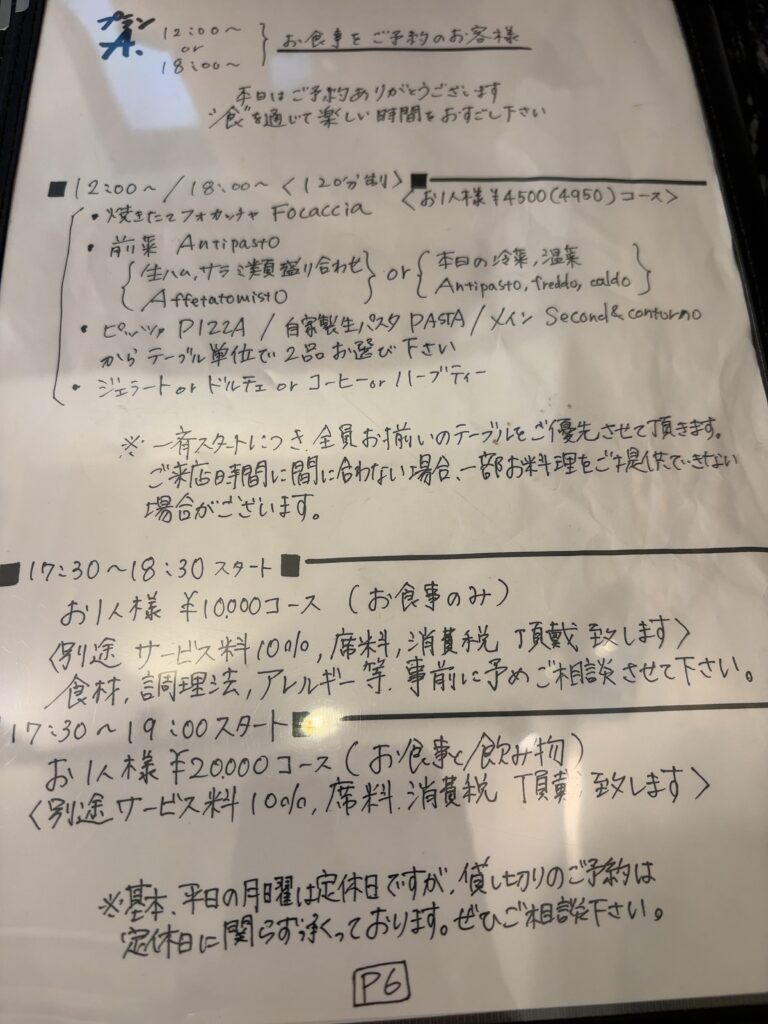 プラン
A.
12:00〜
or
18:00〜
お食事をご予約のお客様
本日はご予約ありがとうございます
"食"を通じて楽しい時間をおすごし下さい
■12:00〜/18:00〜〈120分制〉■
〈お1人様¥4500(4950)コース〉
・焼きたてフォカッチャ Focaccia
・前菜 Antipasto
{生ハム,サラミ類盛り合わせ
Affetatomisto} or {本日の冷菜,温菜
Antipasto, freddo, caldo}
・ピッツァ PIZZA / 自家製生パスタ PASTA / メイン Second&contorno
からテーブル単位で2品お選び下さい
・ジェラート or ドルチェ or コーヒー or ハーブティー
※一斉スタートにつき全員お揃いのテーブルをご優先させて頂きます。
ご来店時間に間に合わない場合、一部お料理をご提供できない
場合がございます。
■17:30〜18:30 スタート■
お1人様 ¥10,000コース (お食事のみ)
〈別途 サービス料10%,席料,消費税 頂戴致します〉
食材,調理法,アレルギー等.事前に予めご相談させて下さい。
17:30〜19:00スタート■
お1人様 ¥20,000コース(お食事と飲み物)
〈別途サービス料10%,席料.消費税 頂戴致します〉
※基本、平日の月曜は定休日ですが、貸し切りのご予約は
定休日に関らず承くっております。ぜひご相談下さい。
P6